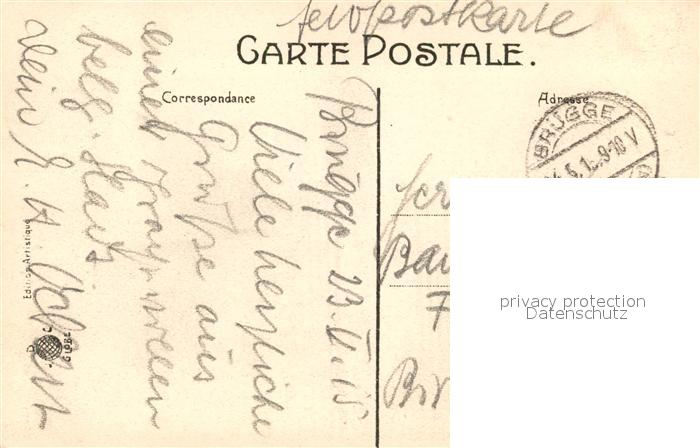 Feldpostkarte
CARTE POSTALE.
Correspondance
Adresse
BRÜGGE
9-10 V
Brügge 23.V.15
Viele herzliche
Grüße aus
einer
belg. Stadt
Dein
Bau
7
Edition Artistique
D C
GLOBE
privacy protection
Datenschutz